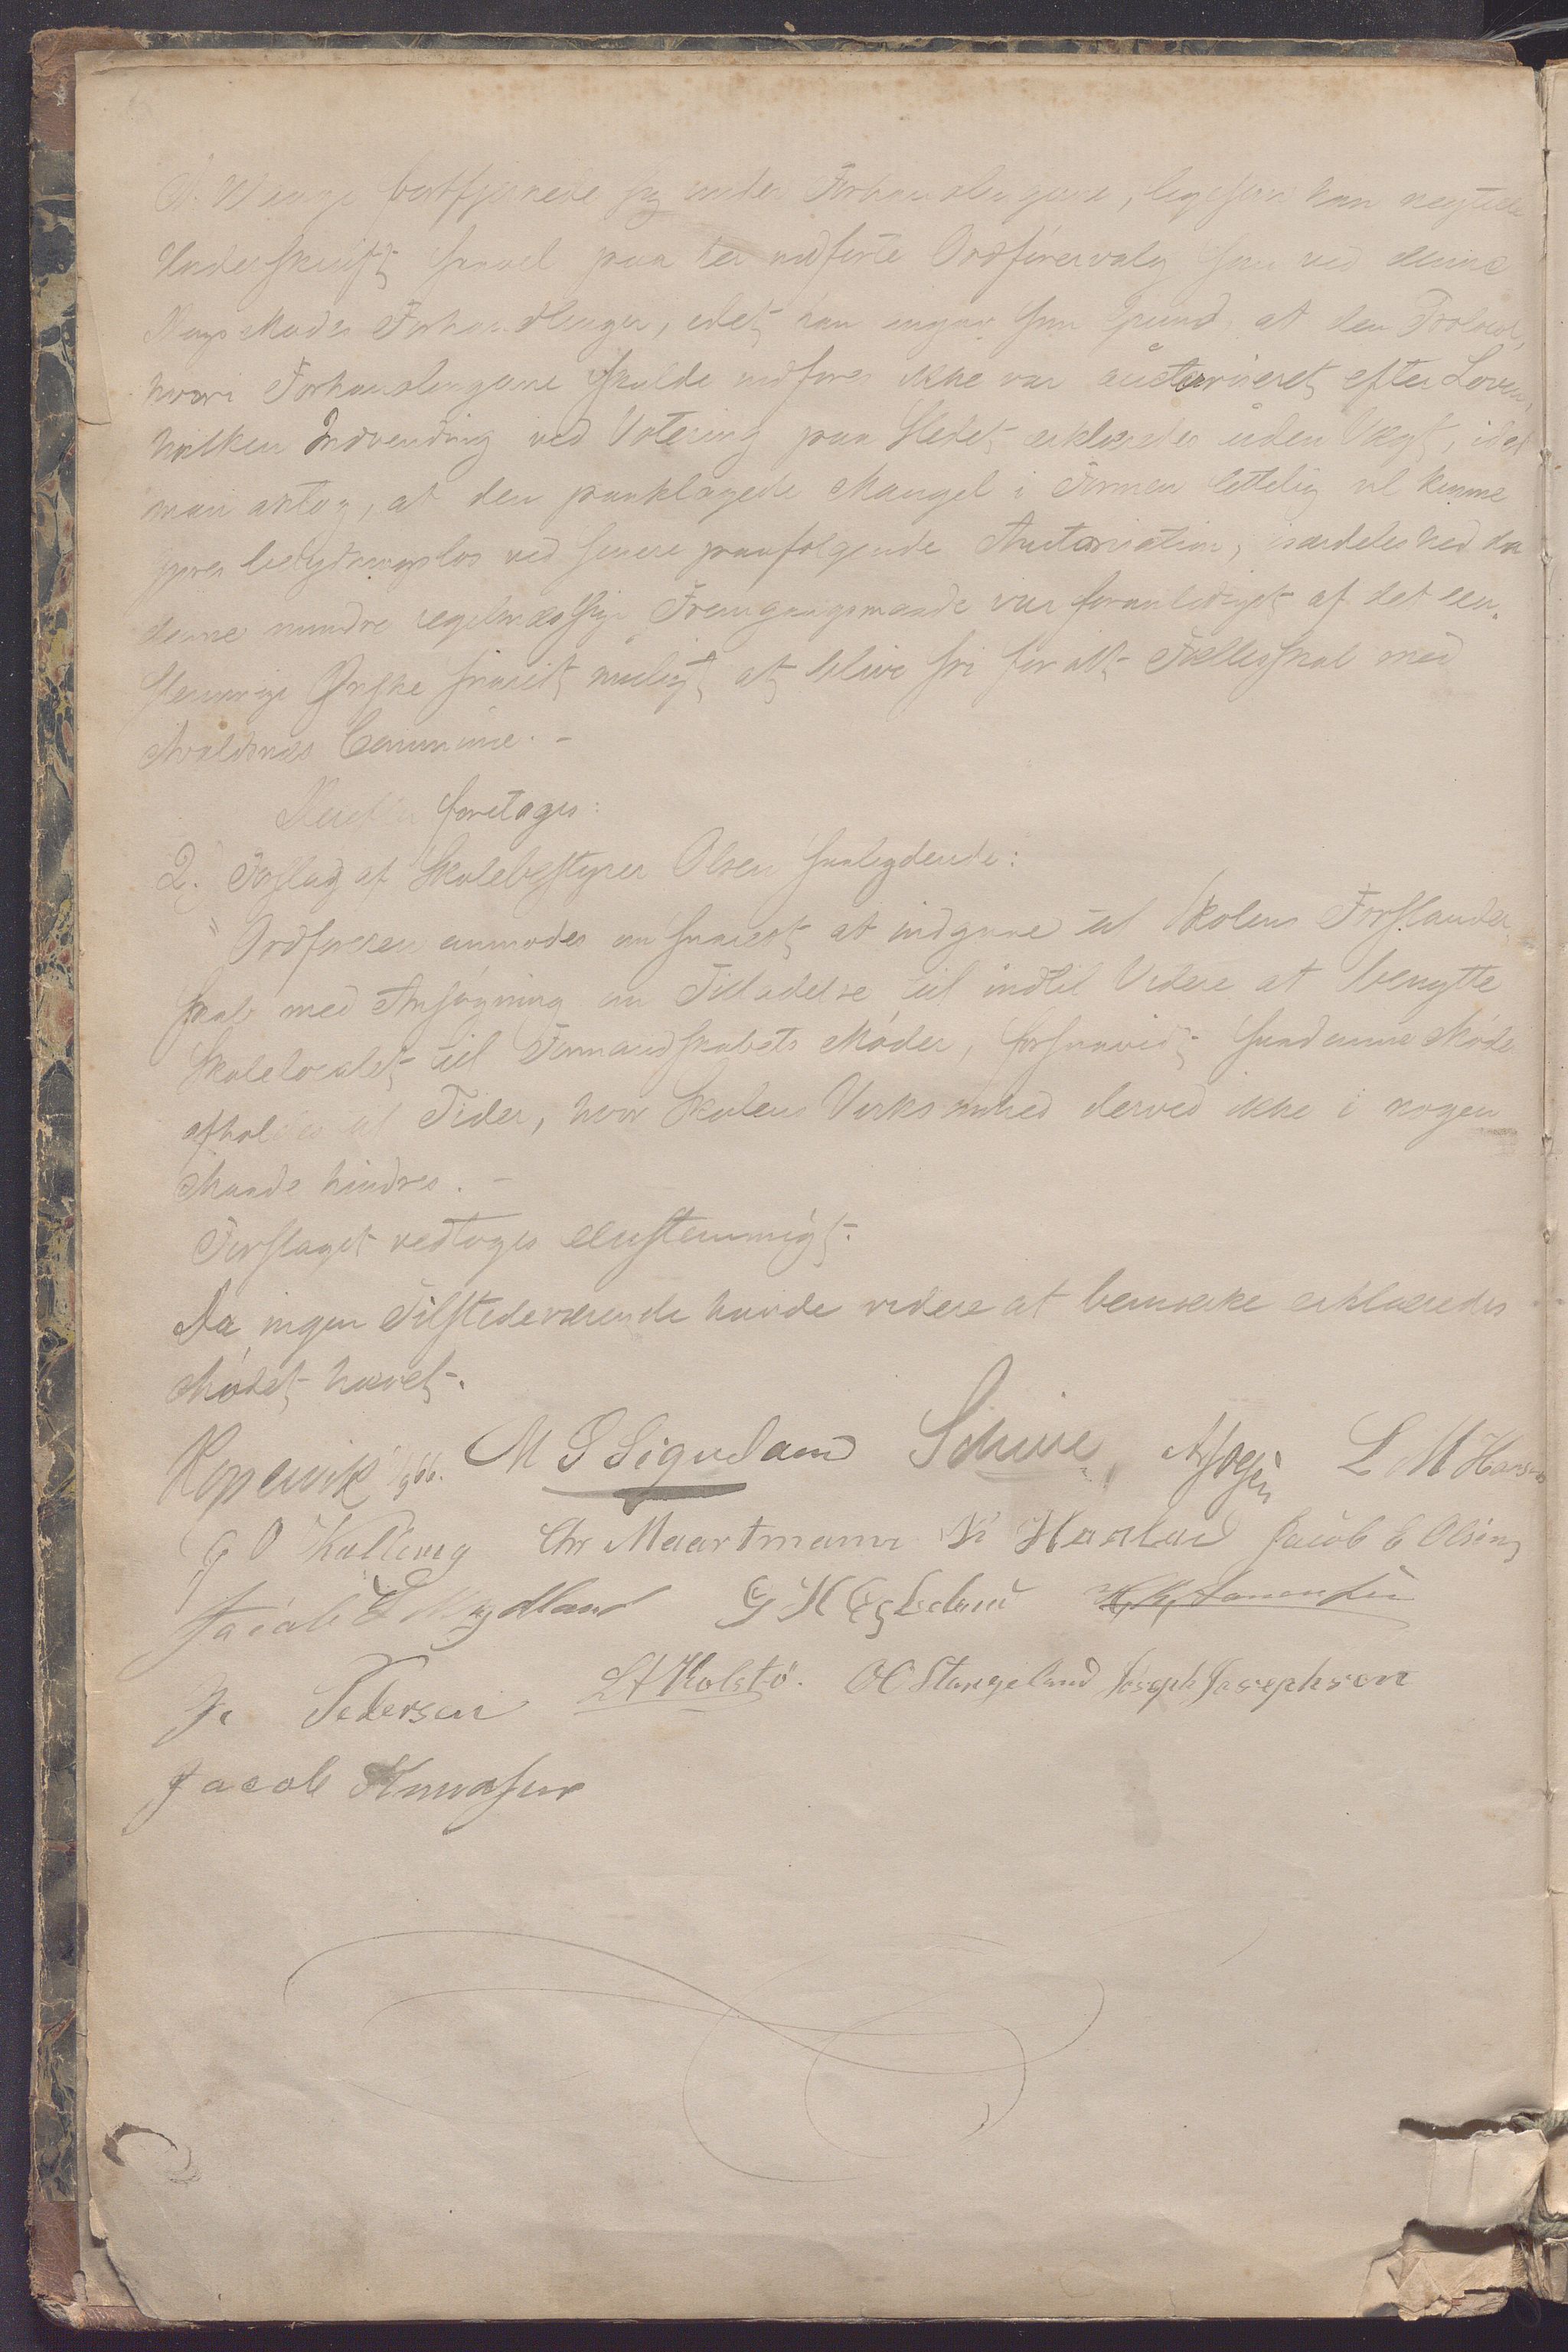 bortfjernede sig under Forhandlingerne, ligesom han negtede
Underskrift saavel paa det udførte Ordførervalg som ved denne
Forhandlinger, idet han angav som Grund, at den Protokol,
hvori Forhandlingerne skulde indføres ikke var auctoriseret efter Loven,
hvilken Indvending ved Votering paa Stedet erklæredes uden Vægt, idet
man antog, at den paaklagede Mangel i Formen lettelig vil kunne
gjøres betydningsløs ved senere paafølgende Autorisation, isærdeleshed da
denne mindre regelmæssige Fremgangsmaade var foranlediget af det een-
stemmige Ønske snarest muligt at blive fri for alt Fællesskab med
Avaldsnæs Commune. -
foretoges:
2. Forslag af Skolebestyrer Olsen saalydende:
"Ordføreren anmodes om snarest at indgaae til Skolens Forstander-
skab med Ansøgning om Tilladelse til indtil Videre at benytte
Skolelocalet til Formandskabets Møder, forsaavidt saadanne Møder
afholdes til Tider, hvor Skolens Virksomhed derved ikke i nogen
Maade hindres. -
Forslaget vedtoges eenstemmigt.
Da ingen Tilstedeværende havde videre at bemærke erklæredes
Mødet hævet.
Kopervik M S Sigvaldsen Schiøe L M Hansen
G O Kallevig Chr Maartmann Jacob E Olsen
Jacob E Mydland G H Eglseland
Pedersen L A Holstø. O C Stangeland Joseph Josephson
Jacob Knudsen